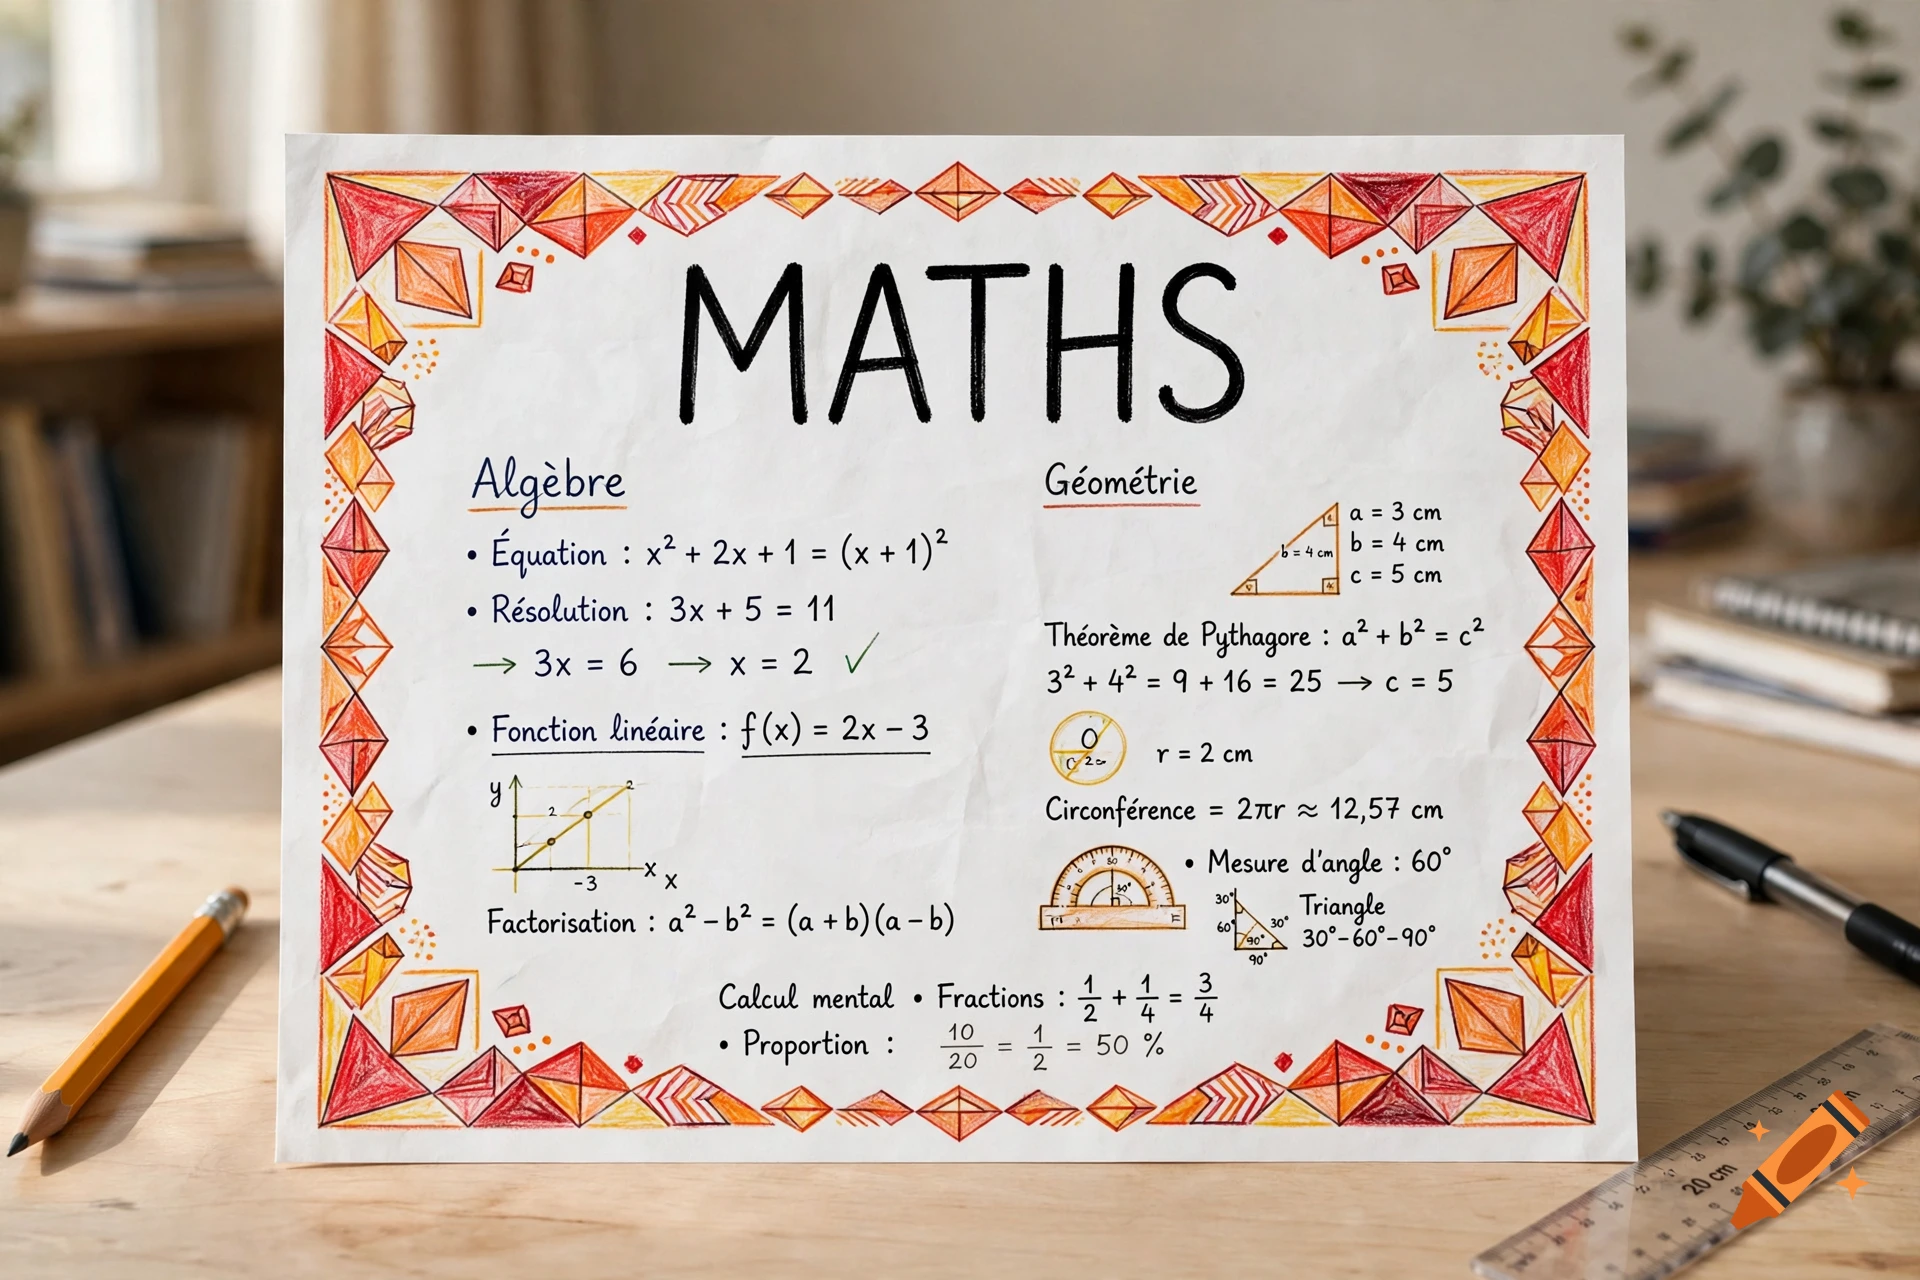 MATHS
Algèbre
• Équation : x² + 2x + 1 = (x + 1)²
• Résolution : 3x + 5 = 11
→ 3x = 6 → x = 2 ✓
• Fonction linéaire : f(x) = 2x − 3
y
2
2
x
x
-3
Factorisation : a² − b² = (a + b)(a − b)
Géométrie
b = 4 cm
a = 3 cm
b = 4 cm
c = 5 cm
Théorème de Pythagore : a² + b² = c²
3² + 4² = 9 + 16 = 25 → c = 5
r = 2 cm
Circonférence = 2πr ≈ 12,57 cm
• Mesure d'angle : 60°
30°
60°
30°
90°
90°
Triangle
30°-60°-90°
Calcul mental • Fractions : 1/2 + 1/4 = 3/4
• Proportion : 10/20 = 1/2 = 50 %
20 cm